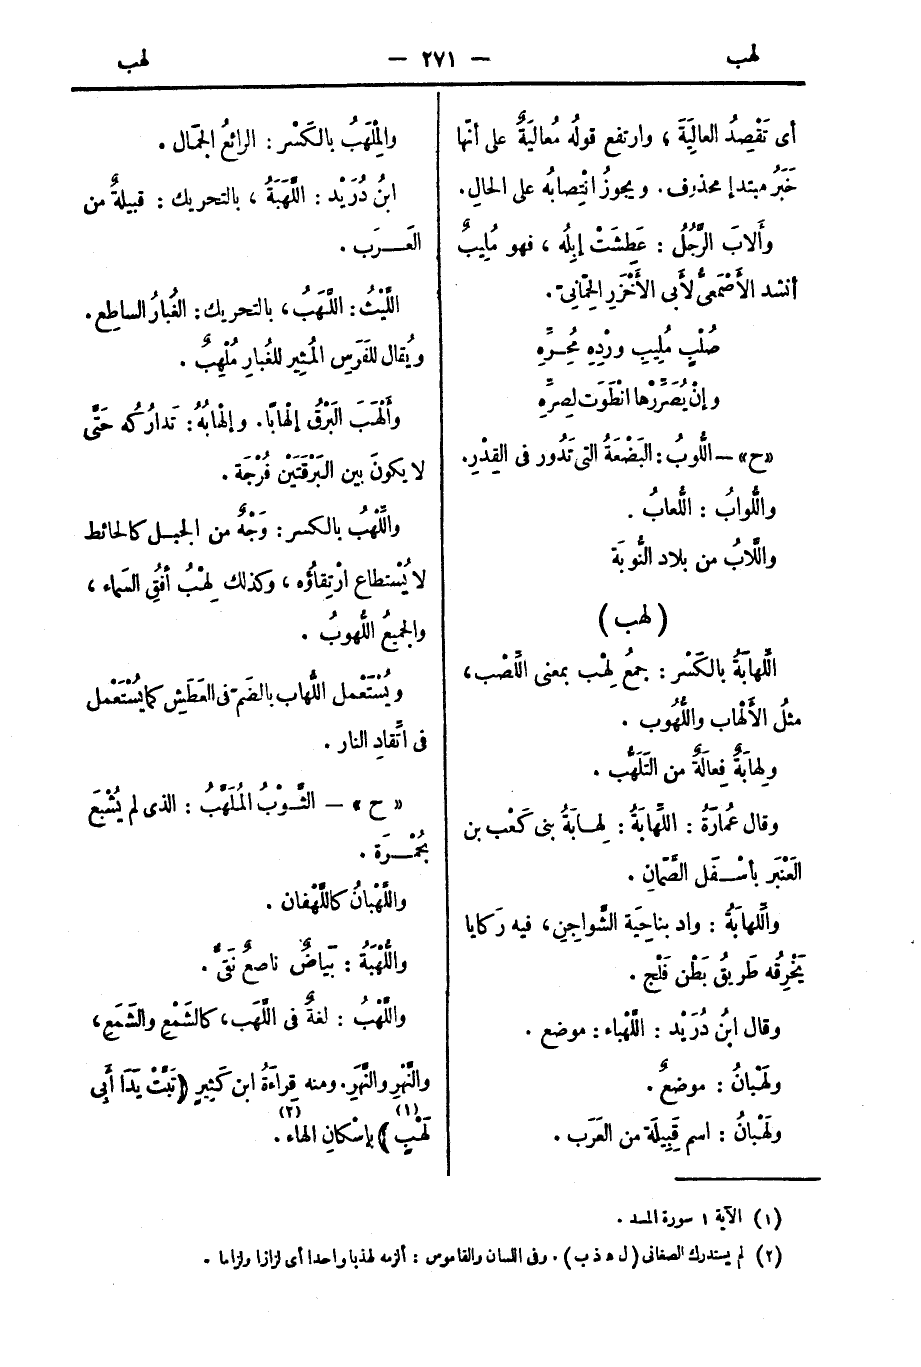 لهب
— ٢٧١ —
لهب
أى تَقْصِدُ العالِيَةَ ، وارتفع قولُه مُعالِيَةٌ على أنّها
خَبَرُ مبتدإ محذوف. ويجوزُ انْتِصابُه على الحالِ.
وأَلابَ الرَّجُلُ : عَطِشَتْ إبِلُه ، فهو مُلِيبٌ
أنشد الأَصْمَعىُّ لأَبى الأَخْزَرِ الحِمّانِىّ.
صُلْبٍ مُلِيبِ ورْدِهِ مُحِرِّهِ
وإنْ يُصَرِّرْها انْطَوَت لِصِرِّهِ
«ح» – اللُّوبُ : البَضْعَةُ التى تَدُور فى القِدْرِ.
واللُّوابُ : اللُّعابُ .
واللَّابُ من بلاد النُّوبَة
( لهب )
اللِّهابَةُ بالكَسْر : جمعُ لِهْب بمعنى اللِّصْب ،
مثلُ الأَلْهاب واللُّهُوب .
ولِهابَةٌ فِعالَةٌ من التَلَهُّب .
وقال عُمارَةُ : اللِّهابَةُ : لِهابَةُ بنى كَعْب بن
العَنْبَر بأسْفَل الصَّمّانِ .
واللِّهابَةُ : واد بناحِيَة الشَّواجِنِ ، فيه رَكايا
يَخْرِقُه طَرِيقُ بَطْن فَلْج .
وقال ابنُ دُرَيْد : اللَّهْباء : موضع .
ولَهْبانُ : موضعٌ .
ولَهْبانُ : اسم قَبِيلَة من العَرَب .
والمِلْهَبُ بالكَسْر : الرائعُ الجمَال .
ابنُ دُرَيْد : اللَّهَبَةُ ، بالتحريك : قبيلةٌ من
العَرَب .
اللَّيْثُ : اللَّهَبُ ، بالتحريك : الغُبارُ الساطِع .
ويُقال للفَرَسِ المُثِير للغُبارِ مُلْهِبٌ .
وأَلْهَبَ البَرْقُ إلْهابًا. وإلْهابُهُ : تَدارُكُه حَتَّى
لا يكونَ بين البَرْقَتَيْن فُرْجَة .
واللِّهْبُ بالكسر : وَجْهٌ من الجبل كالحائط
لا يُسْتطاع ارْتِقاؤُه ، وكذلك لِهْبُ أفُقِ السماء ،
والجميعُ اللُّهوبُ .
ويُسْتَعْمل اللُّهاب بالضَمّ فى العَطَشِ كما يُسْتَعْمل
فى اتِّقادِ النار .
« ح » – الثَّوْبُ المُلَهَّبُ : الذى لم يُشْبَعْ
بحُمْرَة .
واللَّهْبانُ كاللَّهْفان .
واللُّهْبَةُ : بَياضٌ ناصعٌ نَقِىٌّ .
واللَّهْبُ : لغةٌ فى اللَّهَب ، كالشَّمْعِ والشَّمَعِ ،
والنَّهْرِ والنَّهَرِ. ومنه قِراءَةُ ابن كَثِيرٍ ﴿ تَبَّتْ يَدَا أَبِى
لَهْبٍ ﴾ (١) بإسْكانِ الهاء (٢) .
(١) الآية ١ سورة المسد .
(٢) لم يستدرك الصغانى ( ل ه ذ ب ) . وفى اللسان والقاموس : ألزمه لهذبا واحدا أى لزازا ولزاما .